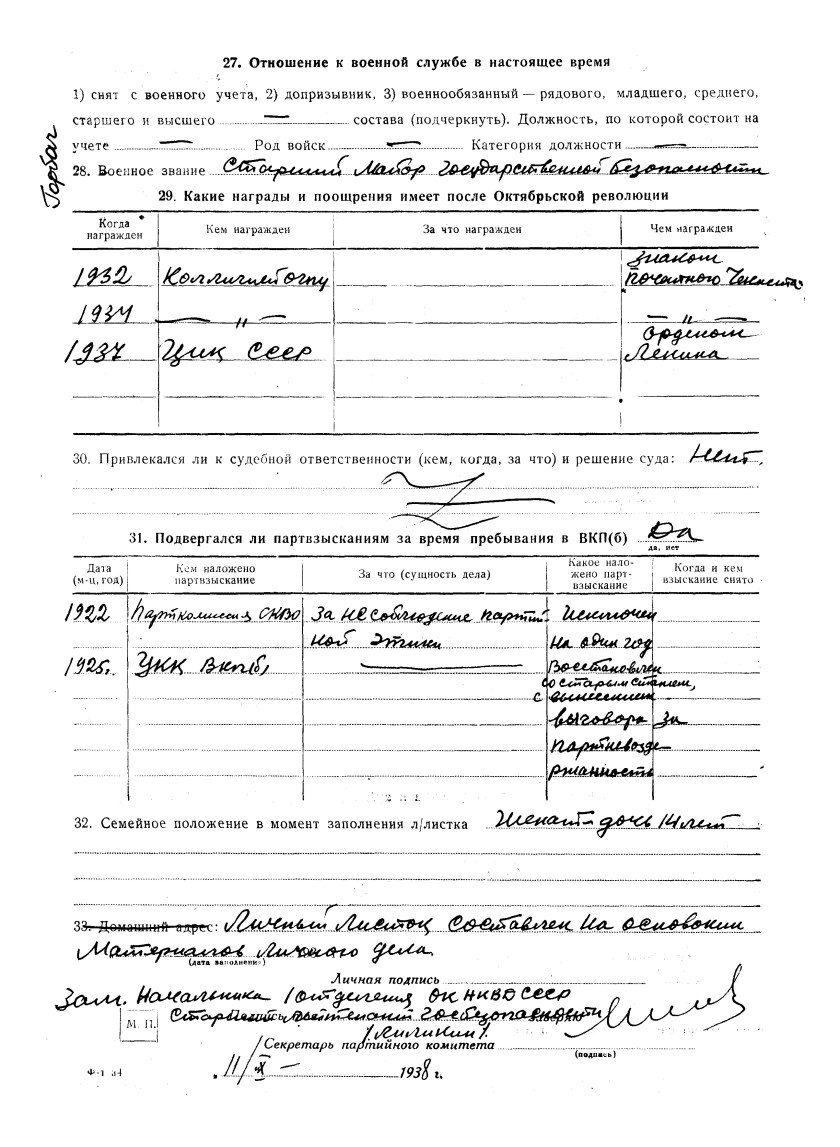 27. Отношение к военной службе в настоящее время
1) снят с военного учета, 2) допризывник, 3) военнообязанный — рядового, младшего, среднего,
старшего и высшего — состава (подчеркнуть). Должность, по которой состоит на
учете — Род войск — Категория должности —
Горбач
28. Военное звание Старший Майор Государственной безопасности
29. Какие награды и поощрения имеет после Октябрьской революции
Когда награжден Кем награжден За что награжден Чем награжден
1932 Коллигией ОГПУ Знаком
почетного Чекиста
1934 — " — — " —
1937 ЦИК СССР Орденом
Ленина
30. Привлекался ли к судебной ответственности (кем, когда, за что) и решение суда: Нет.
31. Подвергался ли партвзысканиям за время пребывания в ВКП(б) Да
да, нет
Дата (м-ц, год) Кем наложено партвзыскание За что (сущность дела) Какое нало-жено парт-взыскание Когда и кем взыскание снято
1922 Парткомиссия СКВО За несоблюдение партий Исключен
ной этики на один год
1925г. ЦКК ВКП(б) — Восстановлен
со старым стажем,
с вынесением
выговора за
партневозде-
ржанность
32. Семейное положение в момент заполнения л/листка Женат – дочь 14 лет
33. Домашний адрес: Личный Листок составлен на основании
Материалов Личного дела
(дата заполнения)
Личная подпись
Зам. Начальника 1 отделения ОК НКВД СССР
М. П. Старший лейтенант Госбезопасности
Секретарь партийного комитета
(подпись)
11/X — 1938 г.